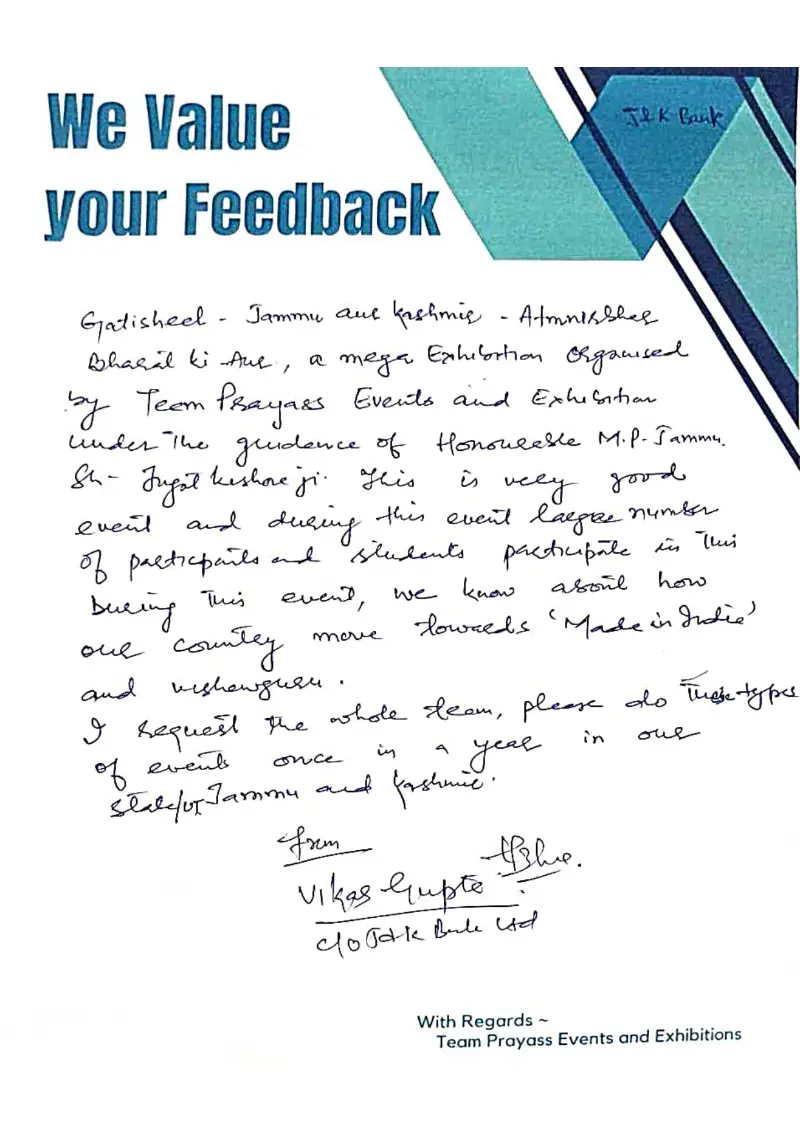 We Value
your Feedback
J&K Bank
Gatisheel - Jammu and Kashmir - Atmnirbhar
Bharat ki Aur, a mega Exhibition Organised
by Team Prayass Events and Exhibition
under the guidence of Honourable M.P. Jammu.
Sh- Jugal kishore ji. This is very good
event and during this event large number
of participants and students participate in This
During This event, we know about how
our country move towards 'Made in India'
and vishewguru.
I request the whole team, please do These types
of events once in a year in our
state/UT Jammu and Kashmir.
from
Vikas Gupta
c/o J&K Bank Ltd
With Regards ~
Team Prayass Events and Exhibitions